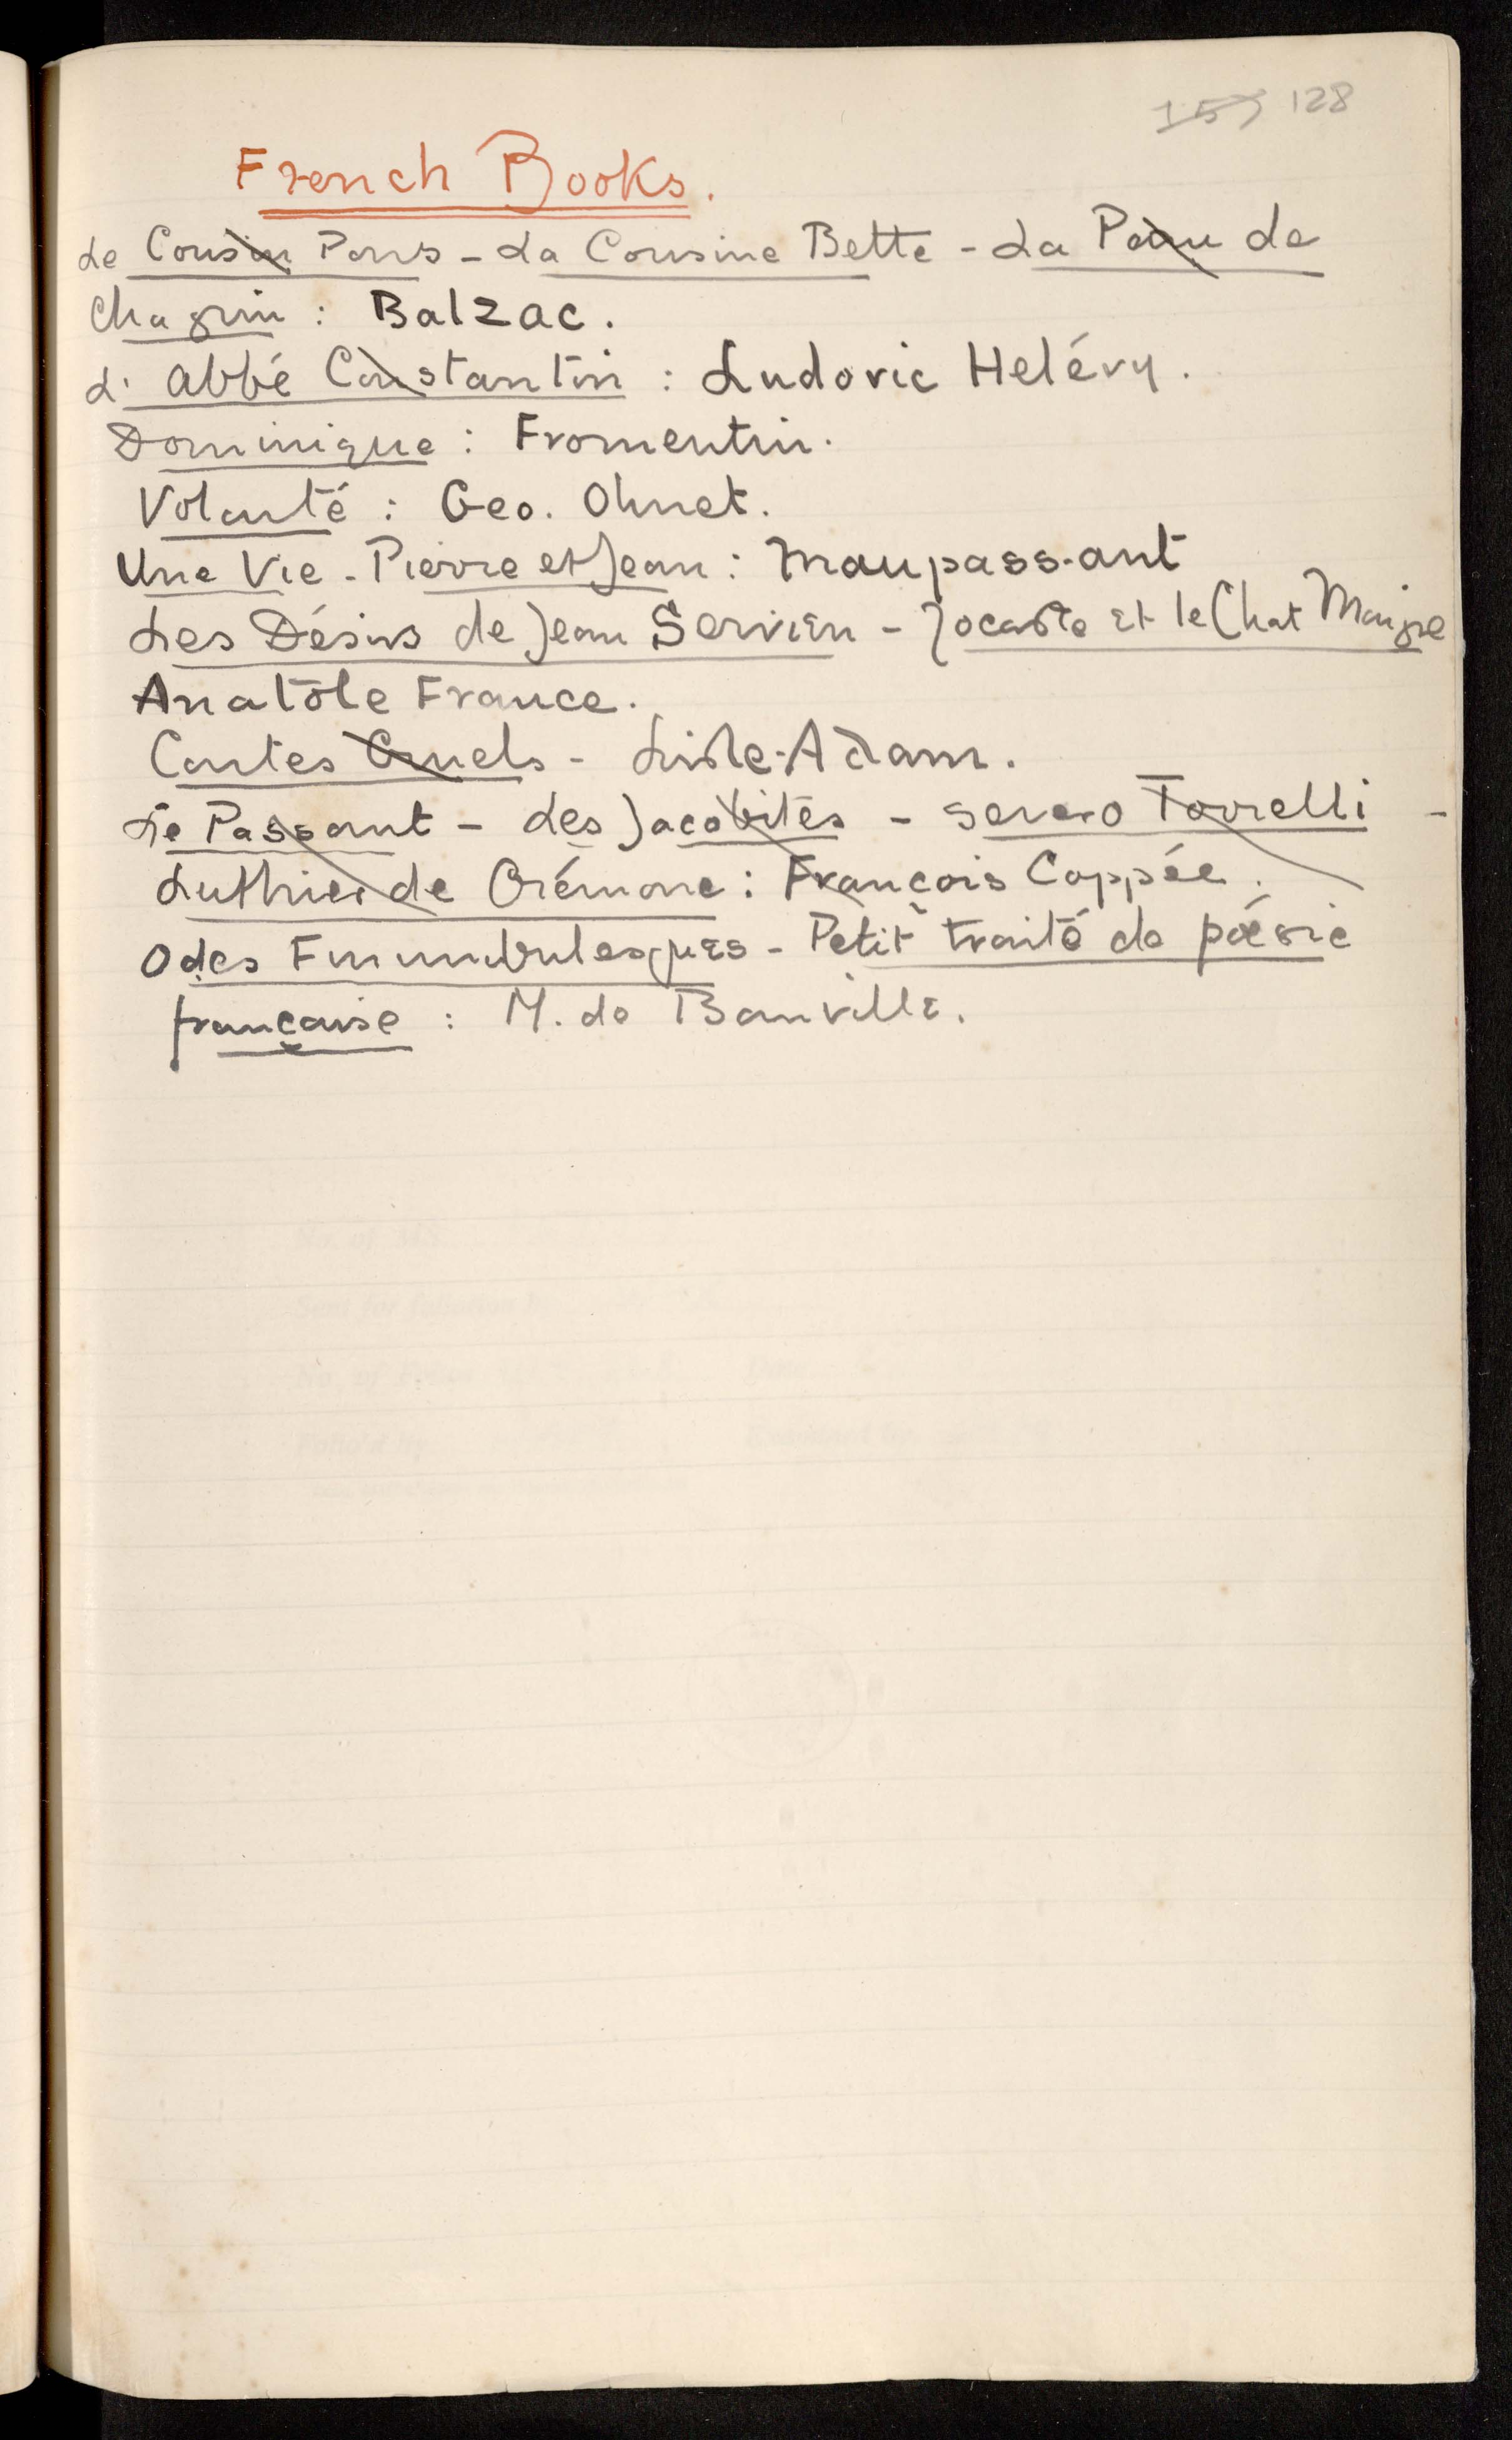 157 128
French Books.
Le Cousin Pons - La Cousine Bette - La Peau de
Chagrin : Balzac.
L'Abbé Constantin : Ludovic Helévy.
Dominique : Fromentin.
Volonté : Geo. Ohnet.
Une Vie - Pierre et Jean : Maupass-ant
Les Désirs de Jean Servien - Jocaste et le Chat Maigre
Anatôle France.
Contes Cruels - Lisle-Adam.
Le Passant - Les Jacobites - Severo Torrelli -
Luthier de Crémone : François Coppée.
Odes Funambulesques - Petit traité de poésie
française : M. de Banville.